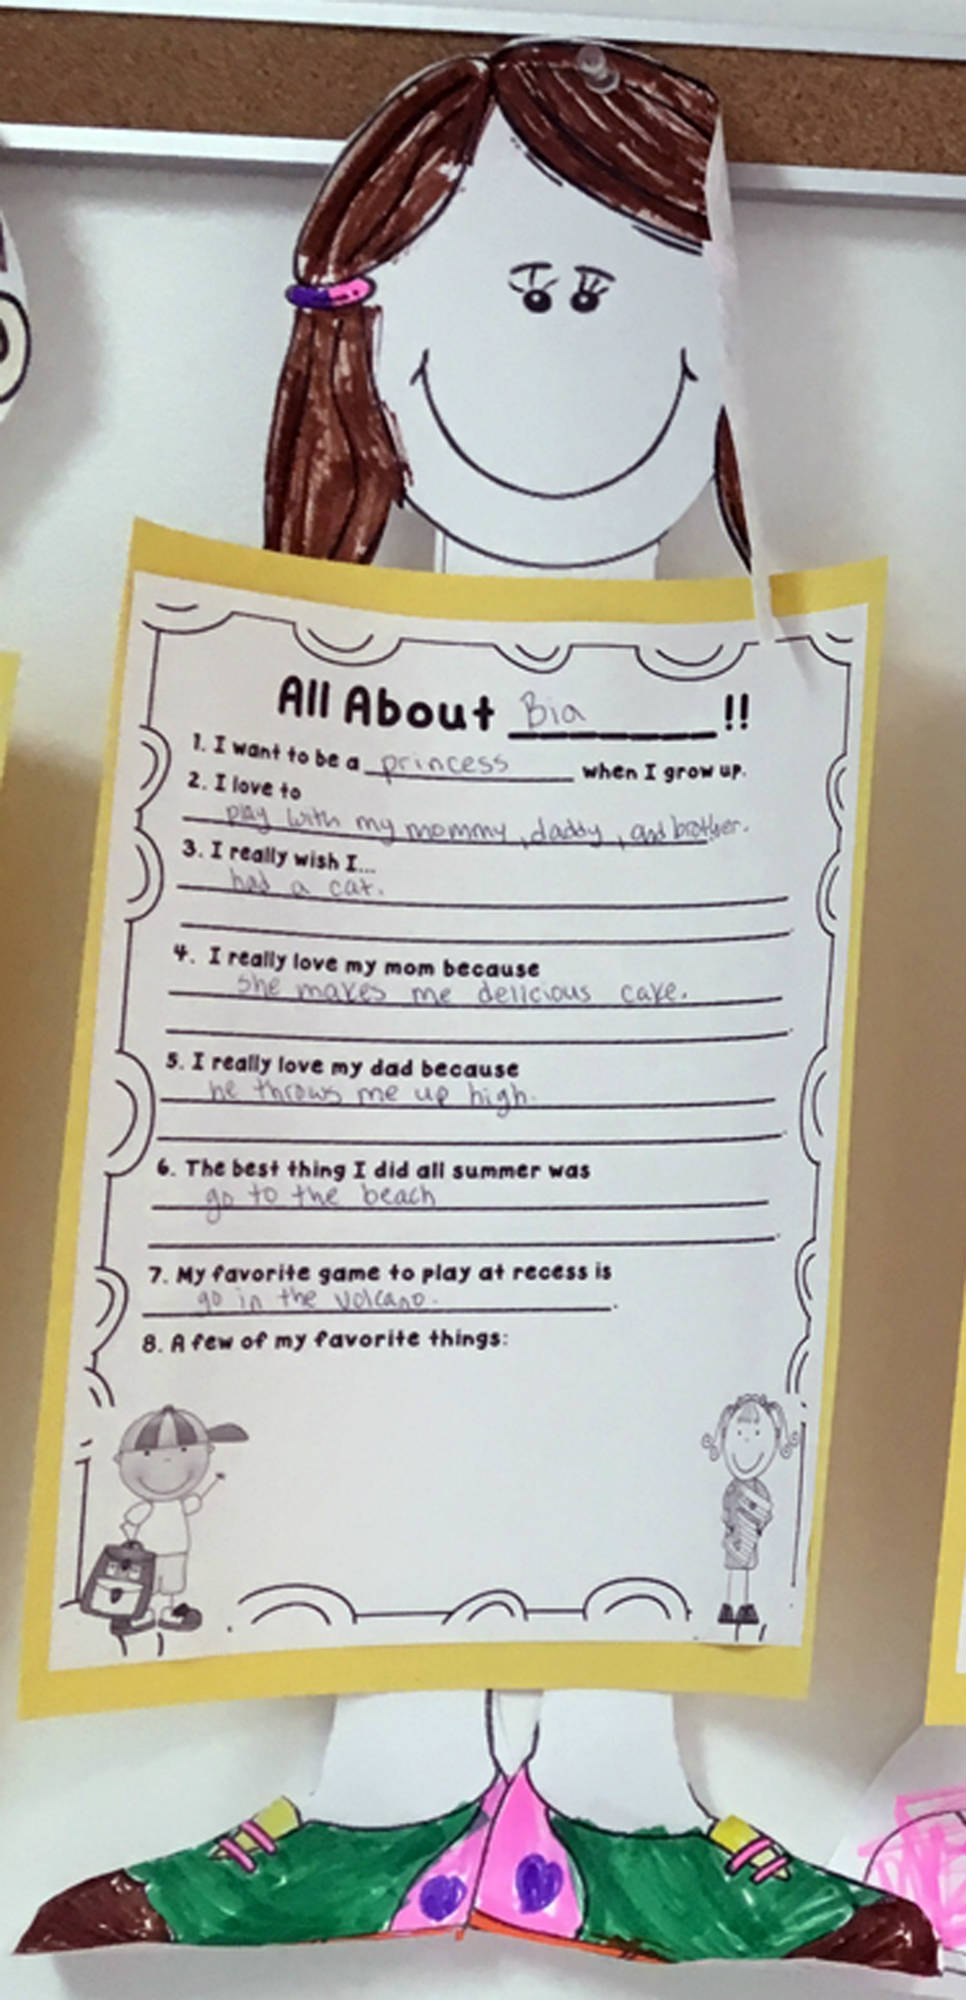 All About Bia !!
1. I want to be a princess when I grow up.
2. I love to
play with my mommy, daddy, and brother.
3. I really wish I...
had a cat.
4. I really love my mom because
she makes me delicious cake.
5. I really love my dad because
he throws me up high.
6. The best thing I did all summer was
go to the beach
7. My favorite game to play at recess is
go in the volcano.
8. A few of my favorite things: